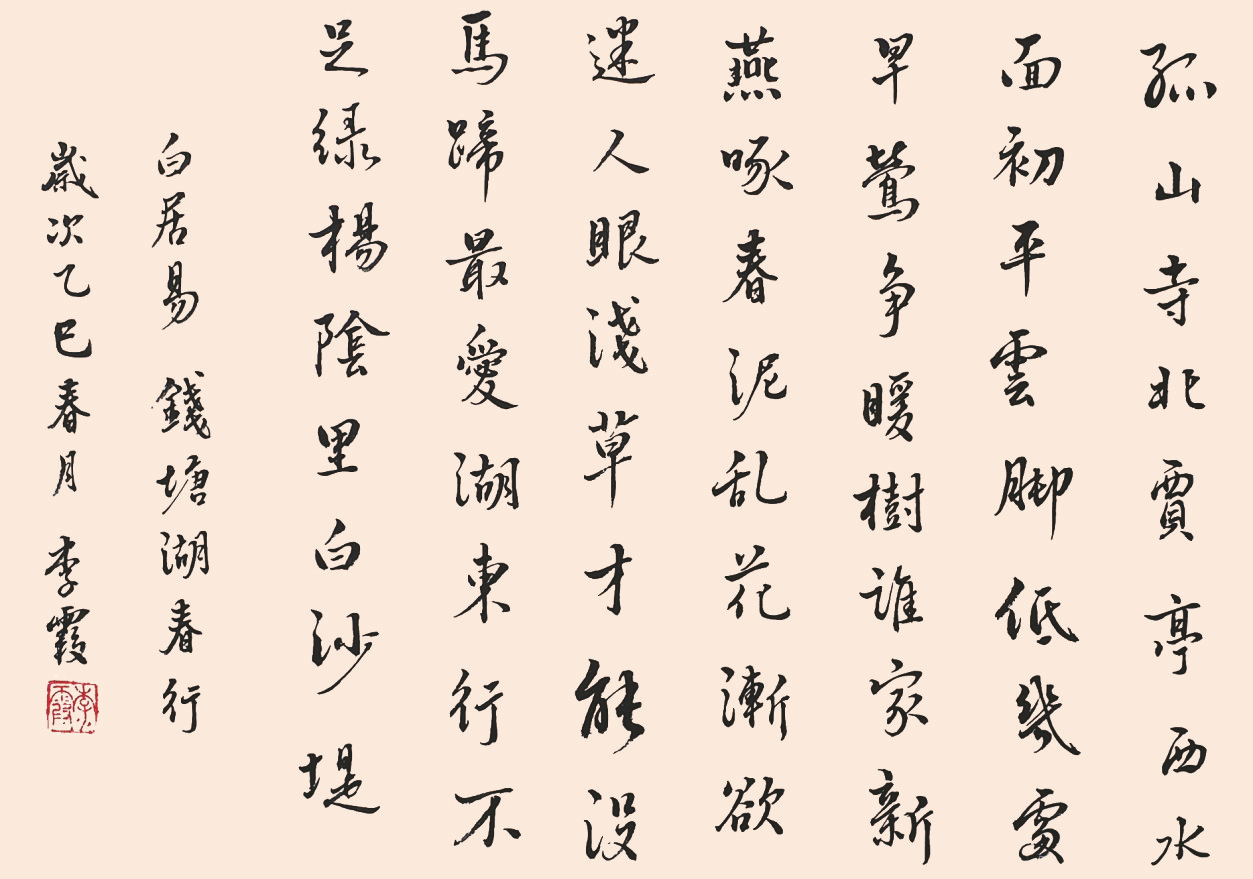 孤山寺北賈亭西水
面初平雲脚低幾處
早鶯争暖樹誰家新
燕啄春泥乱花漸欲
迷人眼淺草才能没
馬蹄最愛湖東行不
足緑楊陰里白沙堤
白居易 錢塘湖春行
歲次乙巳春月 李霞
李霞